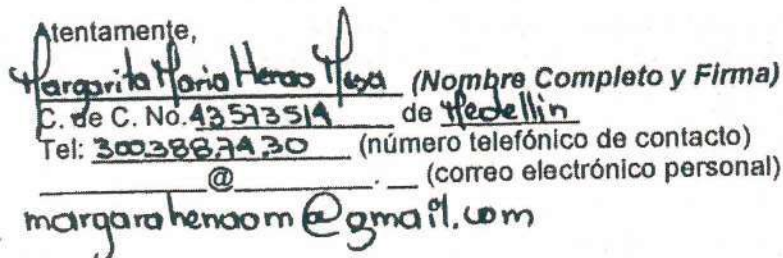 Atentamente,
Margarita Maria Henao Meza (Nombre Completo y Firma)
C. de C. No. 43573514 de Medellin
Tel: 300.388.74.30 (número telefónico de contacto)
____________@__________.__ (correo electrónico personal)
margarahenaom@gmail.com